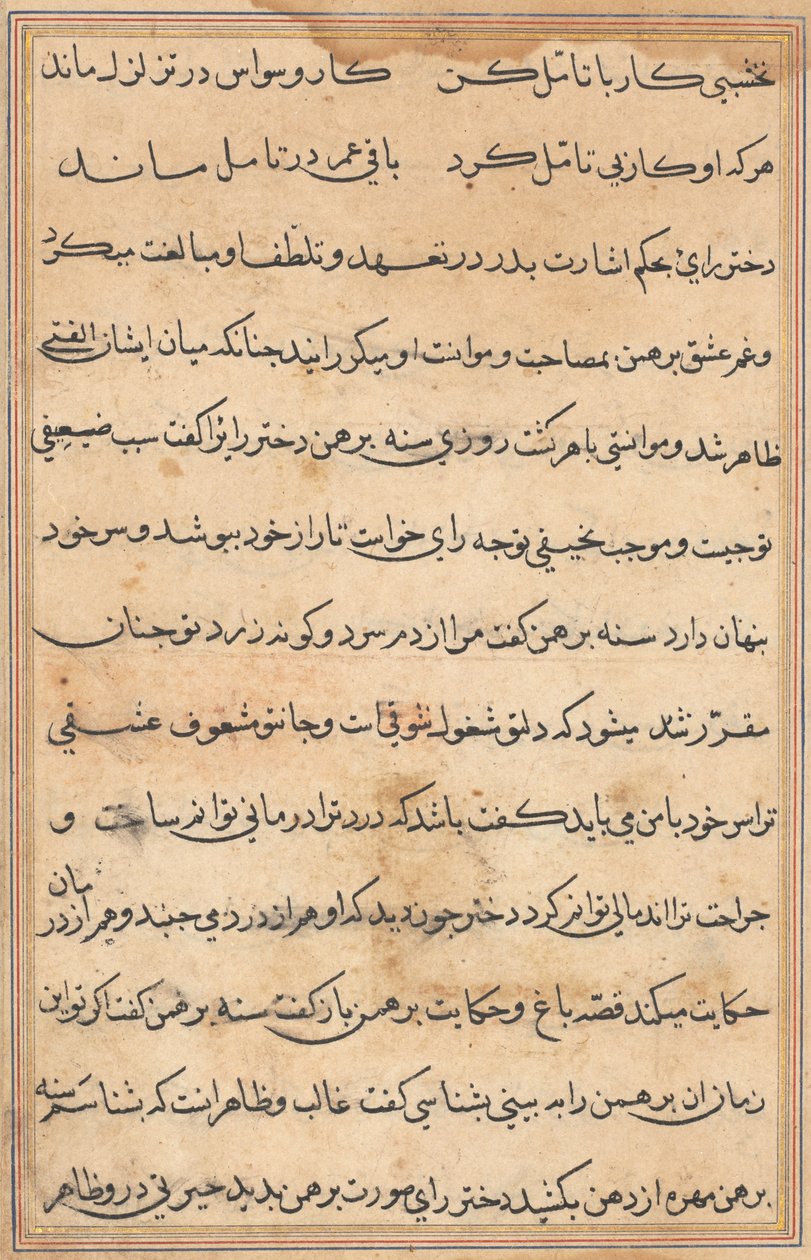 نخشبي کار با تامّل کن کار وسواس در تزلزل ماند
هر که او کار بي تامّل کرد باقي عمر در تامل ماند
دختر راي بحکم اشارت بدر در تعهد و تلطّف او مبالغت ميکرد
و غم عشق برهمن بمصاحبت و موانست او ميکرانيد جنانکه ميان ايشان الفتي
ظاهر شد و موانستي باهر کشت روزي سنه برهمن دختر رايرا کفت سبب ضيعيفي
توجيست و موجب نحيفي توجه راي خواست تا راز خود ببوشد و سر خود
بنهان دارد سنه برهمن کفت مرا از دم سرد و کونه زرد تو جنان
مقرّر شد ميشود که دلتو مشغول شوقي است و جانتو مشعوف عشقي
ترا سر خود با من مي بايد کفت باشد که درد ترا درماني توانم ساخت و
جراحت ترا اندمالي توانم کرد دختر جون ديد که او هم از درد مي جنبد و هم از درمان
حکايت ميکند قصّه باغ و حکايت برهمن باز کفت سنه برهمن کفت اکر تو اين
زمان ان برهمن را به بيني بشناسي کفت غالب و ظاهر انست که بشناسم سنه
برهمن مهره از دهن بکشيد دختر راي صورت برهمن بديد حيرتي درو ظاهر